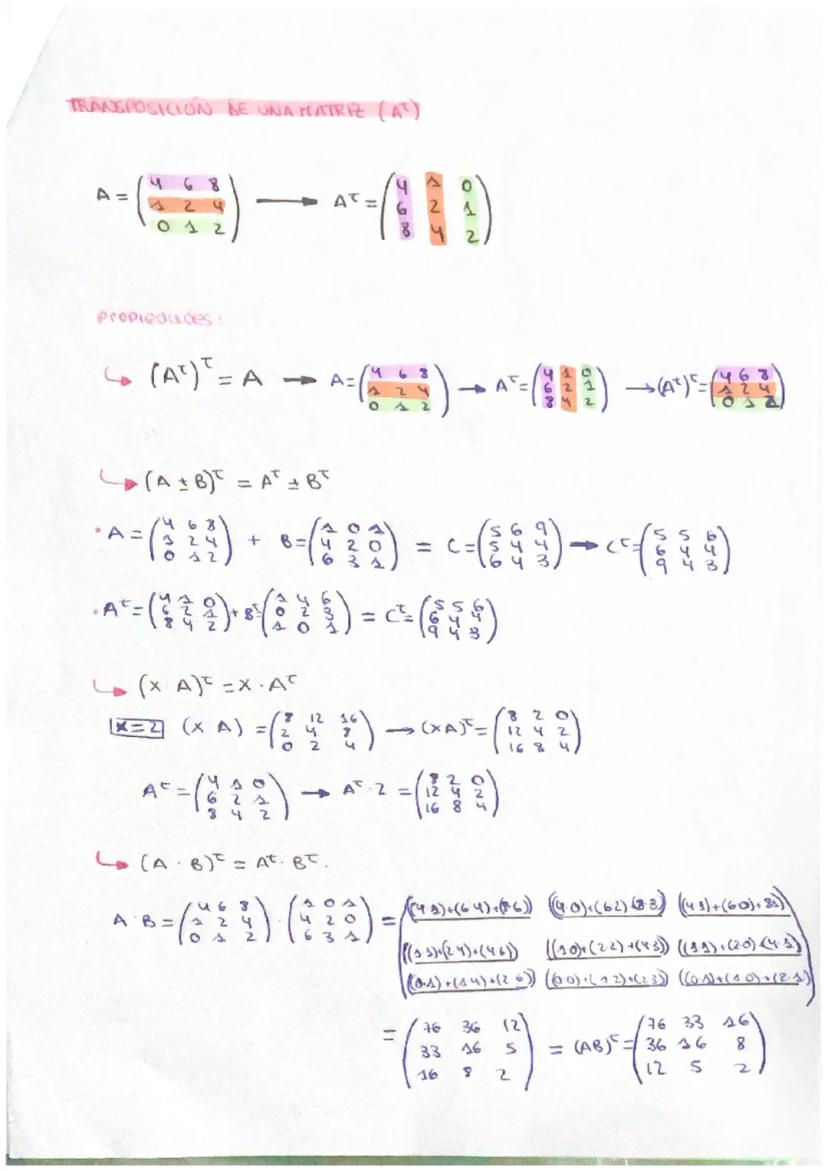 TRANSPOSICIÓN DE UNA MATRIZ (Aᵗ)
A = (4 6 8 / 1 2 4 / 0 1 2) ⟶ Aᵗ = (4 1 0 / 6 2 1 / 8 4 2)
Propiedades:
↳ (Aᵗ)ᵗ = A → A = (4 6 8 / 1 2 4 / 0 1 2) → Aᵗ = (4 1 0 / 6 2 1 / 8 4 2) → (Aᵗ)ᵗ = (4 6 8 / 1 2 4 / 0 1 2)
↳ (A ± B)ᵗ = Aᵗ ± Bᵗ
· A = (4 6 8 / 1 2 4 / 0 1 2) + B = (1 0 1 / 4 2 0 / 6 3 1) = C = (5 6 9 / 5 4 4 / 6 4 3) → Cᵗ = (5 5 6 / 6 4 4 / 9 4 3)
· Aᵗ = (4 1 0 / 6 2 1 / 8 4 2) + Bᵗ (1 4 6 / 0 2 3 / 1 0 1) = Cᵗ = (5 5 6 / 6 4 4 / 9 4 3)
↳ (X A)ᵗ = X · Aᵗ
X=2 (X A) = (8 12 16 / 2 4 8 / 0 2 4) → (XA)ᵗ = (8 2 0 / 12 4 2 / 16 8 4)
Aᵗ = (4 1 0 / 6 2 1 / 8 4 2) → Aᵗ · 2 = (8 2 0 / 12 4 2 / 16 8 4)
↳ (A · B)ᵗ = Aᵗ · Bᵗ.
A · B = (4 6 8 / 1 2 4 / 0 1 2) · (1 0 1 / 4 2 0 / 6 3 1) = ((4·1)+(6·4)+(8·6)) ((4·0)+(6·2)+(8·3)) ((4·1)+(6·0)+(8·1))
((1·1)+(2·4)+(4·6)) ((1·0)+(2·2)+(4·3)) ((1·1)+(2·0)+(4·1))
((0·1)+(1·4)+(2·6)) ((0·0)+(1·2)+(2·3)) ((0·1)+(1·0)+(2·1))
= (76 36 12 / 33 16 5 / 16 8 2) = (AB)ᵗ = (76 33 16 / 36 16 8 / 12 5 2)